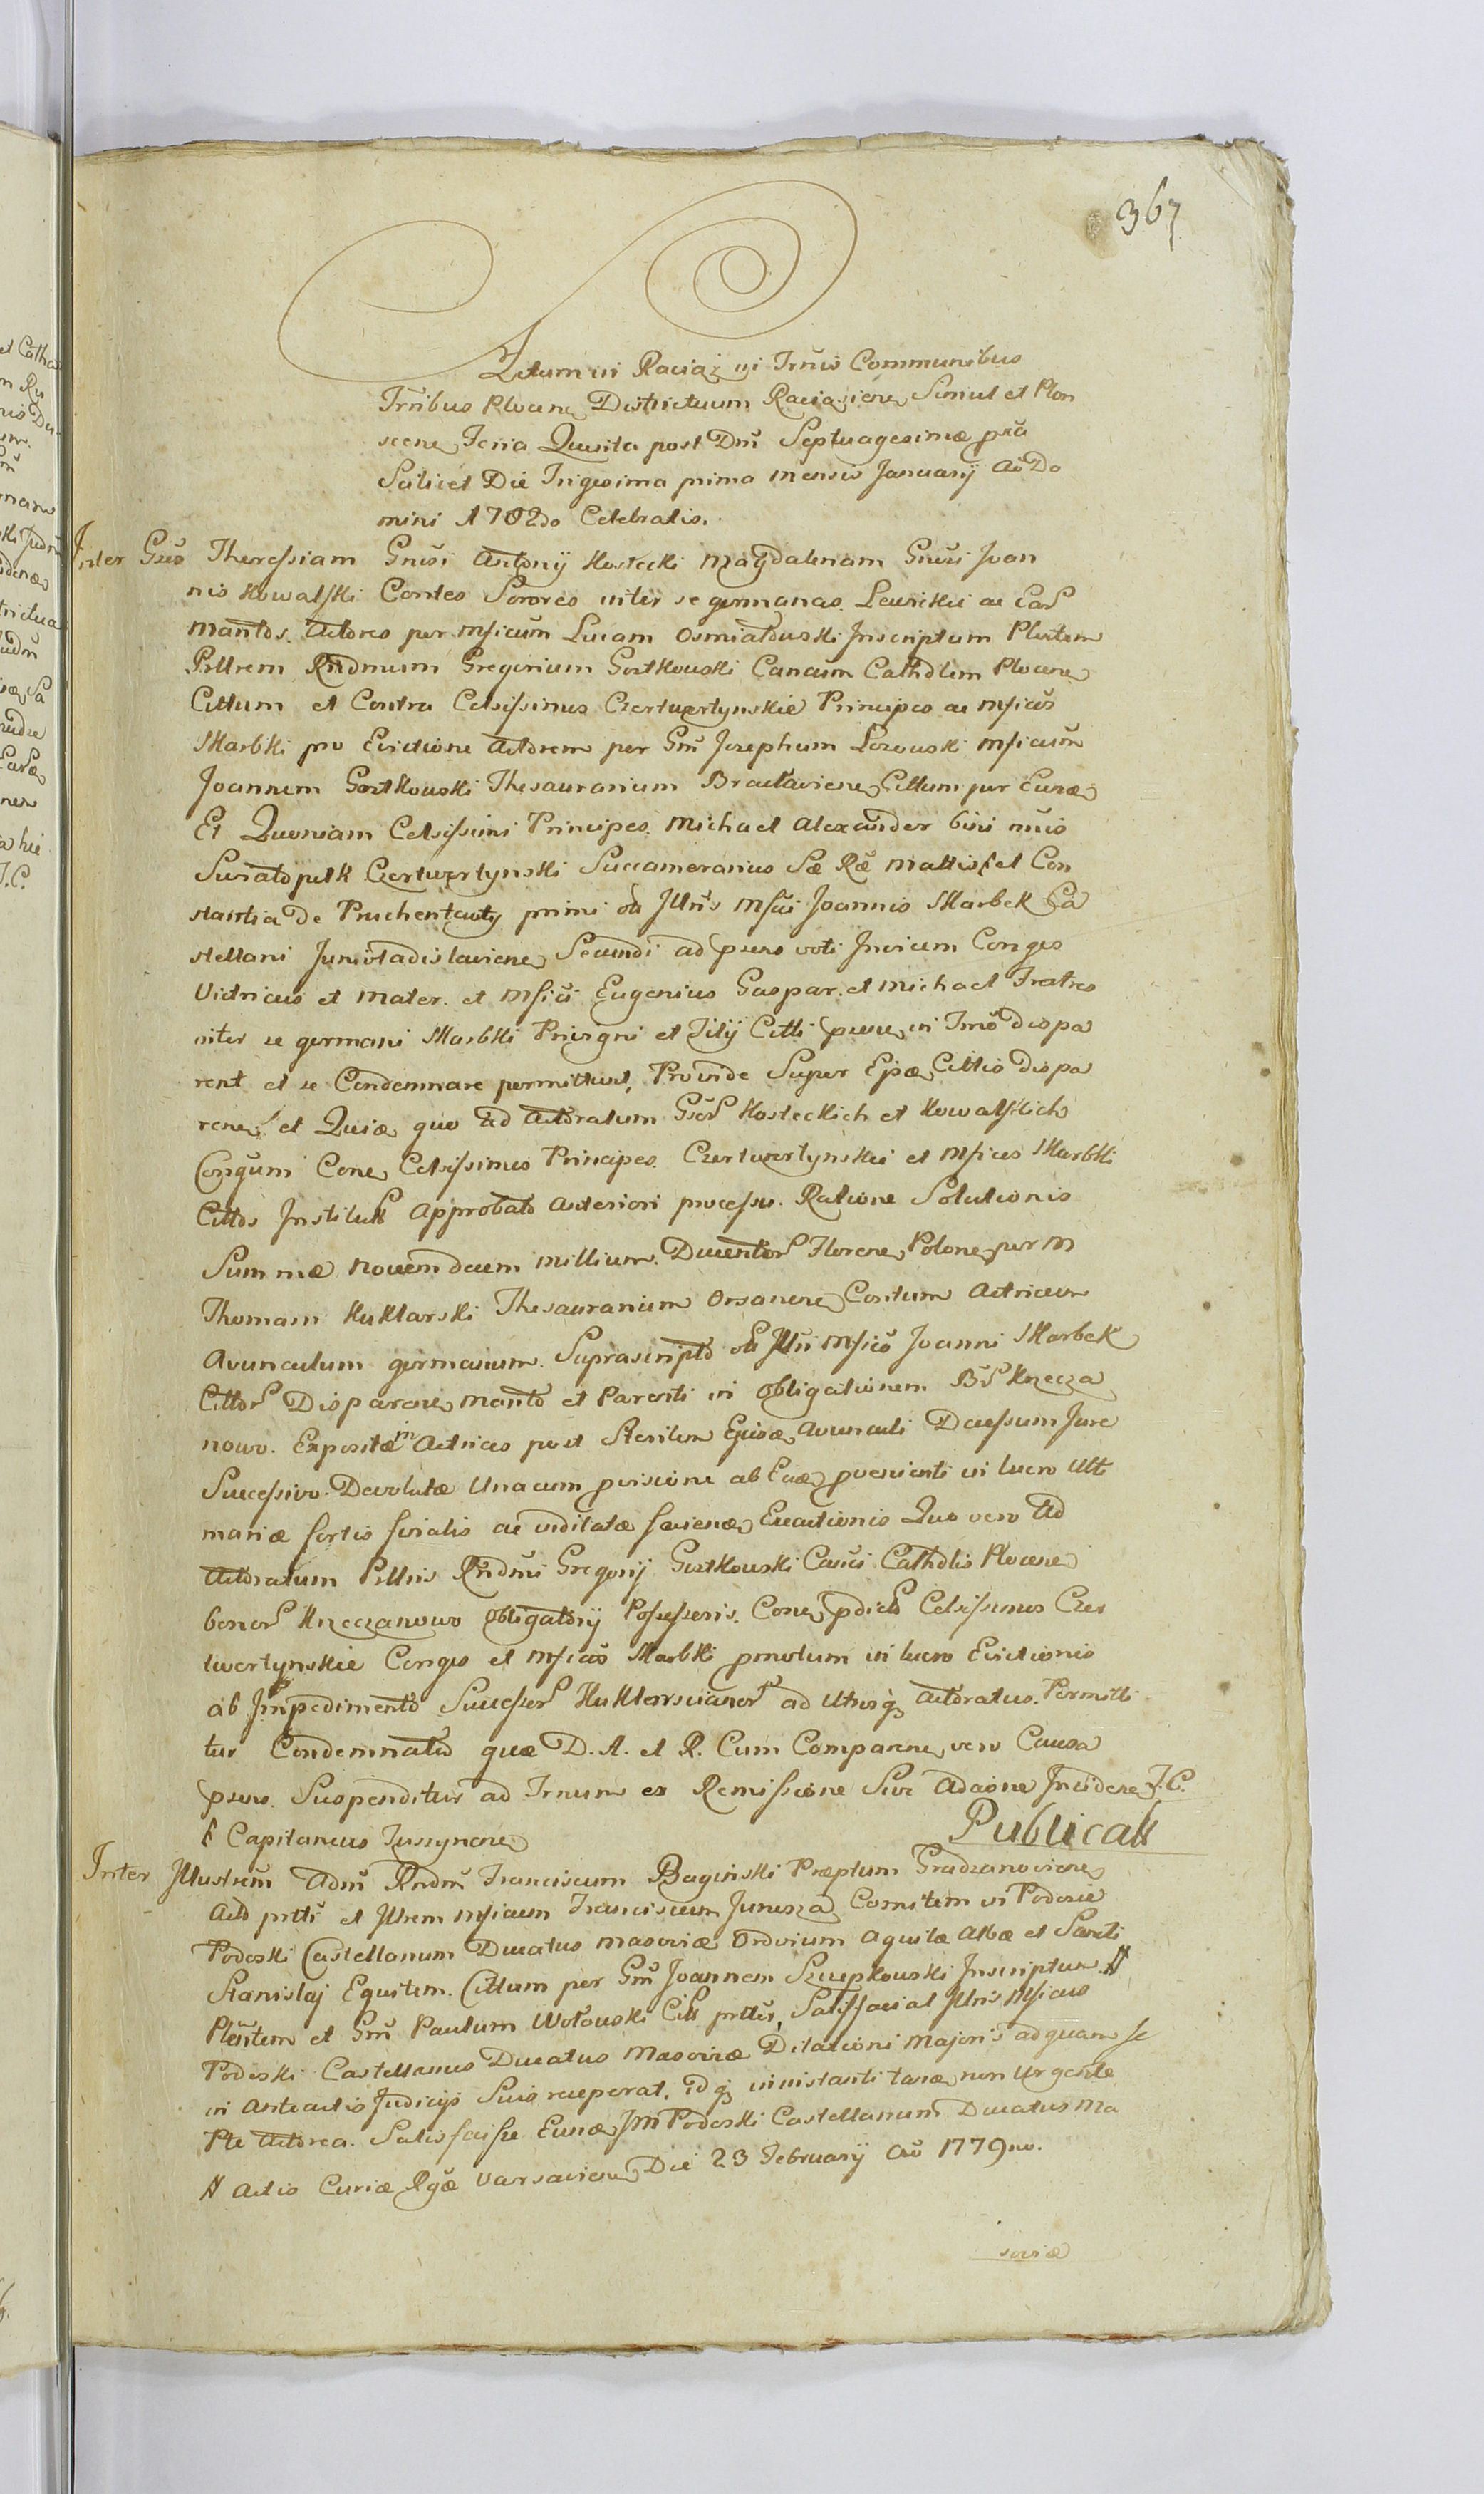 367
Actum in Raciąz in Trnis Communibus
Trribus Plocen Districtuum Raciazien Simul et Plon
scen Feria Quinta post Dm Septuagesimæ pxa
Scilicet Die Trigesima prima mensis Januarij Ao Do
mini 1782do Celebratis.
Inter Gsas Theressiam Gnesi Antonij Kostecki Magdalenam Gnesi Joan
nis Kowalski Contes Sorores inter se germanas. Lewickie ac Ear
Mantos. Actores per Mficum Lucam Osmiałowski Inscriptum Plntem
Pilltrem Rndmum Gregorium Gostkowski Canćum Cathdlem Plocen
Cittum et Contra Celsissimos Czertwertynskie Principes ac Mficos
Skarbki pro Evictione Actorem per Gm Josephum Lozowski Mficum
Joannem Gostkowski Thesaurarium Braclavien Cittum per Eund
Et Quoniam Celsissimi Principes. Michael Alexander bini nnis
Swiatopełk Czertwertynski Succamerarius Sæ Ræ Mattis ł et Con
stantia De Pruchentauty primi oli Illris Mfici Joannis Skarbek Ca
stellani Juniwladislavien Secundi ad præns voti Invicem Conges
Vitricus et Mater. et Mfici Eugenius Gaspar. et Michael Fratres
inter se germani Skarbki Privigni et Filij Citti præn in Trno dispa
rent et se Condemnare permittunt, Proinde Super Ejsd Cittis dispa
ren et Quia quo ad Actoratum Gsor Kosteckich et Kowalskich
Congum Con Celsissimos Principes. Czertwertynskie et Mficos Skarbki
Cittos Institut Approbato anteriori processu. Ratione Solutionis
Summæ novemdecem millium. Ducentor Floren Polon per M
Thomam Kuklarski Thesaurarium Orsanen Contum Actricum
Avunculum germanum. Suprascripto oli Illri Mfico Joanni Skarbek
Cittor Disparen, Manto et Parenti in Obligationem Br Krzecza
nowo. Expositæ in Actrices post Sterilem Ejusd Avunculi Decessum Jure
Successivo. Devolutæ Unacum provisione ab Ead provenienti in lucro Ulti
mariæ sortis Sivialis ac inditatæ faciend Exactionis Quo vero Ad
Actoratum Pilltris Rndmi Gregorij Gostkowski Canci Cathdlis Plocen
bonor Krzeczanowo Obligatorij Possessoris. Con pdictos Celsissimos Czer
twertynskie Conges et Mficos Skarbki pmotum in lucro Evictionis
ab Impedimento Successor Kuklarscianor ad Utrosq Actoratus. Permitti
tur Condemnatio quæ D. A. et R. Cum Comparen vero Causa
præns. Suspenditur ad Trnum ex Remissione Sive Adcione Inciden J. C.
ł Capitaneus Jussynen
Publicatt
Inter Illustrem Adm Rndm Franciscum Baginski Præptum Gradzanovien
Act prttr et Illrem Mficum Franciscum Junosza Comitem in Podosie
Podoski Castellanum Ducatus Masoviæ Ordinum Aquilæ Albæ et Sancti
Stanislaj Equitem. Cittum per Gm Joannem Szczepkowski Inscriptum #
Plentem et Gm Paulum Wołowski Citt prttr, Satisfaciat Illris Mficus
Podoski Castellanus Ducatus Masoviæ Dilationi Majoris ad quam se
in Anteactis Judicijs Suis receperat, idq in instanti tand non Urgente
Pte Actorea. Satisfecisse Eund Im Podoski Castellanum Ducatus Ma
# Actis Curiæ Rgæ Varsavien Die 23 Februarij Ao 1779no.
soviæ